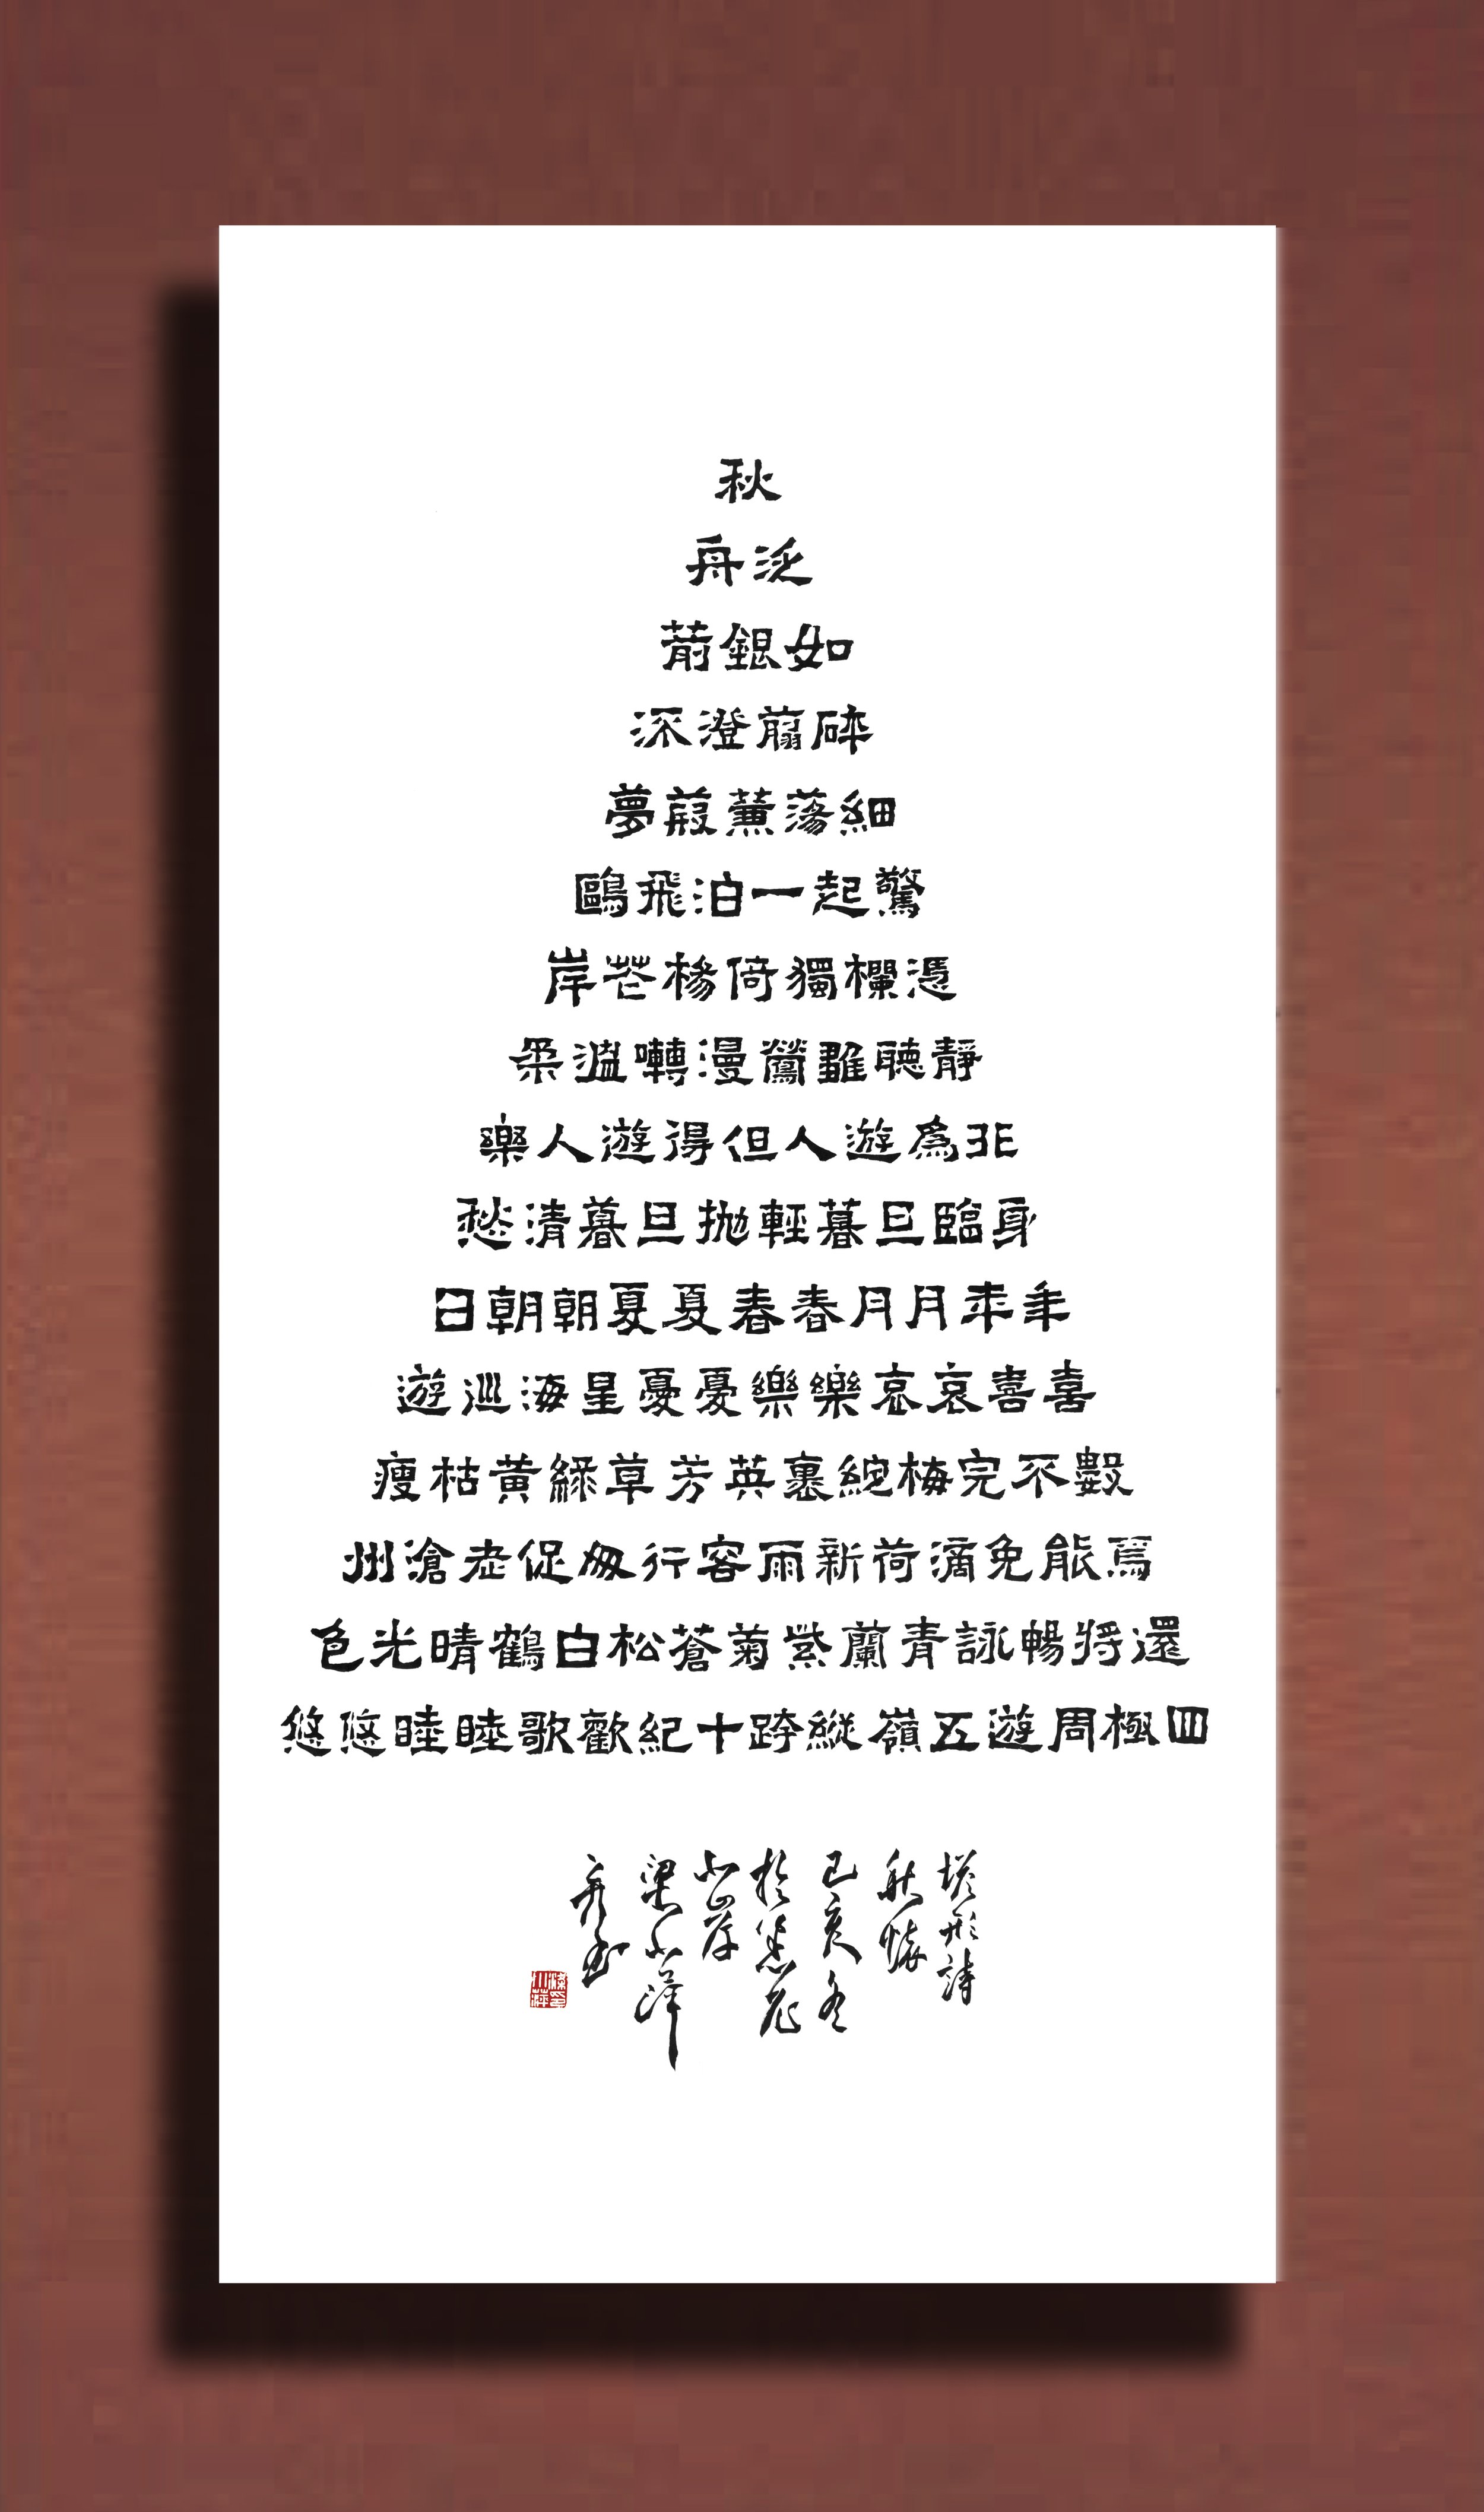 秋
泛舟
如銀箭
碎翦澄深
細落蒹葭夢
驚起一泊飛鷗
憑欄獨倚楊芒岸
靜聽雛鶯漫囀溫柔
非爲遊人但得遊人樂
身臨旦暮輕拋旦暮清愁
年來月月春春夏夏朝朝日
喜喜哀哀樂樂憂憂星海巡遊
數不完梅綻裏英芳草綠黃枯瘦
焉能免滴荷新雨容行匆促老滄州
還將暢詠青蘭紫菊蒼松白鶴晴光色
四極周遊五嶺縱跨十紀歡歌睦睦悠悠
塔形詩
秋懷
己亥冬
於悉尼
北岸
梁小萍
并書